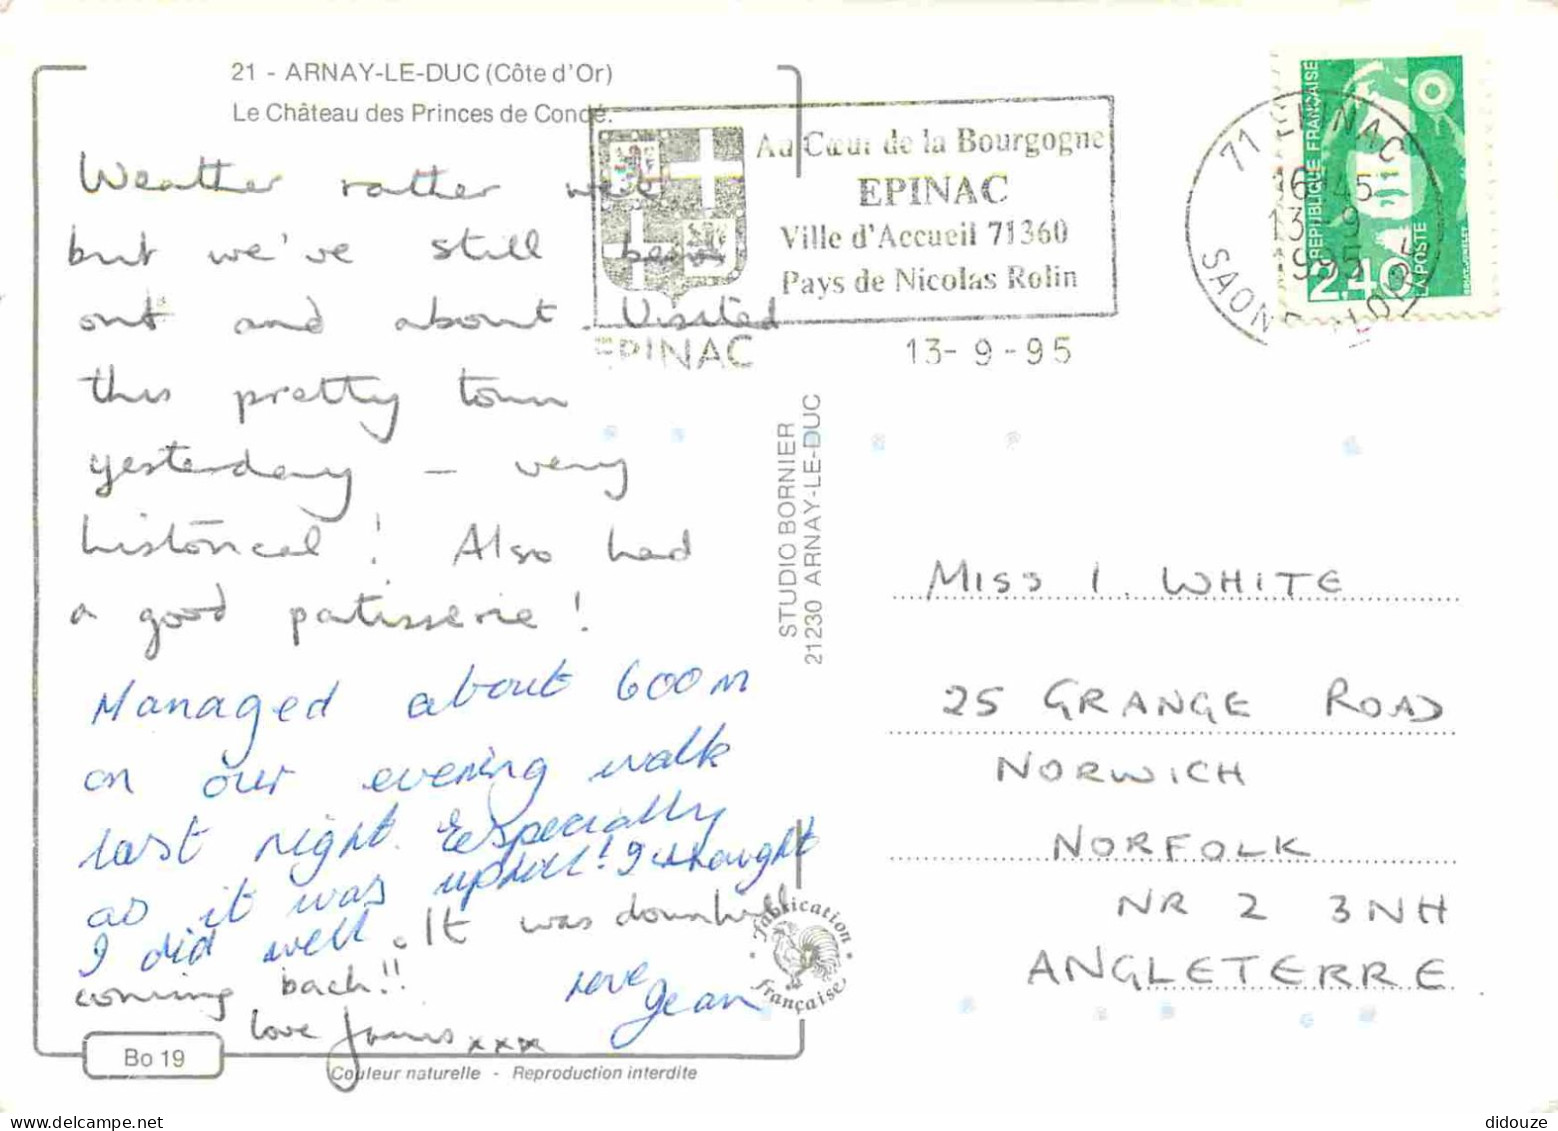 21 - ARNAY-LE-DUC (Côte d'Or)
Le Château des Princes de Condé.
Weather rather wet
but we've still been
out and about. Visited
this pretty town
yesterday – very
historical! Also had
a good patisserie!
Managed about 600m
on our evening walk
last night. Especially
as it was uphill! I thought
I did well. It was downhill
coming back!!
love Jean
love James xxx
Bo 19
Couleur naturelle - Reproduction interdite
Au Cœur de la Bourgogne
EPINAC
Ville d'Accueil 71360
Pays de Nicolas Rolin
EPINAC
13-9-95
71 EPINAC
16H45
13-9
1995
SAONE-ET-LOIRE
REPUBLIQUE FRANÇAISE
2,40
LA POSTE
STUDIO BORNIER
21230 ARNAY-LE-DUC
Fabrication
Française
MISS I. WHITE
25 GRANGE ROAD
NORWICH
NORFOLK
NR 2 3NH
ANGLETERRE
didouze